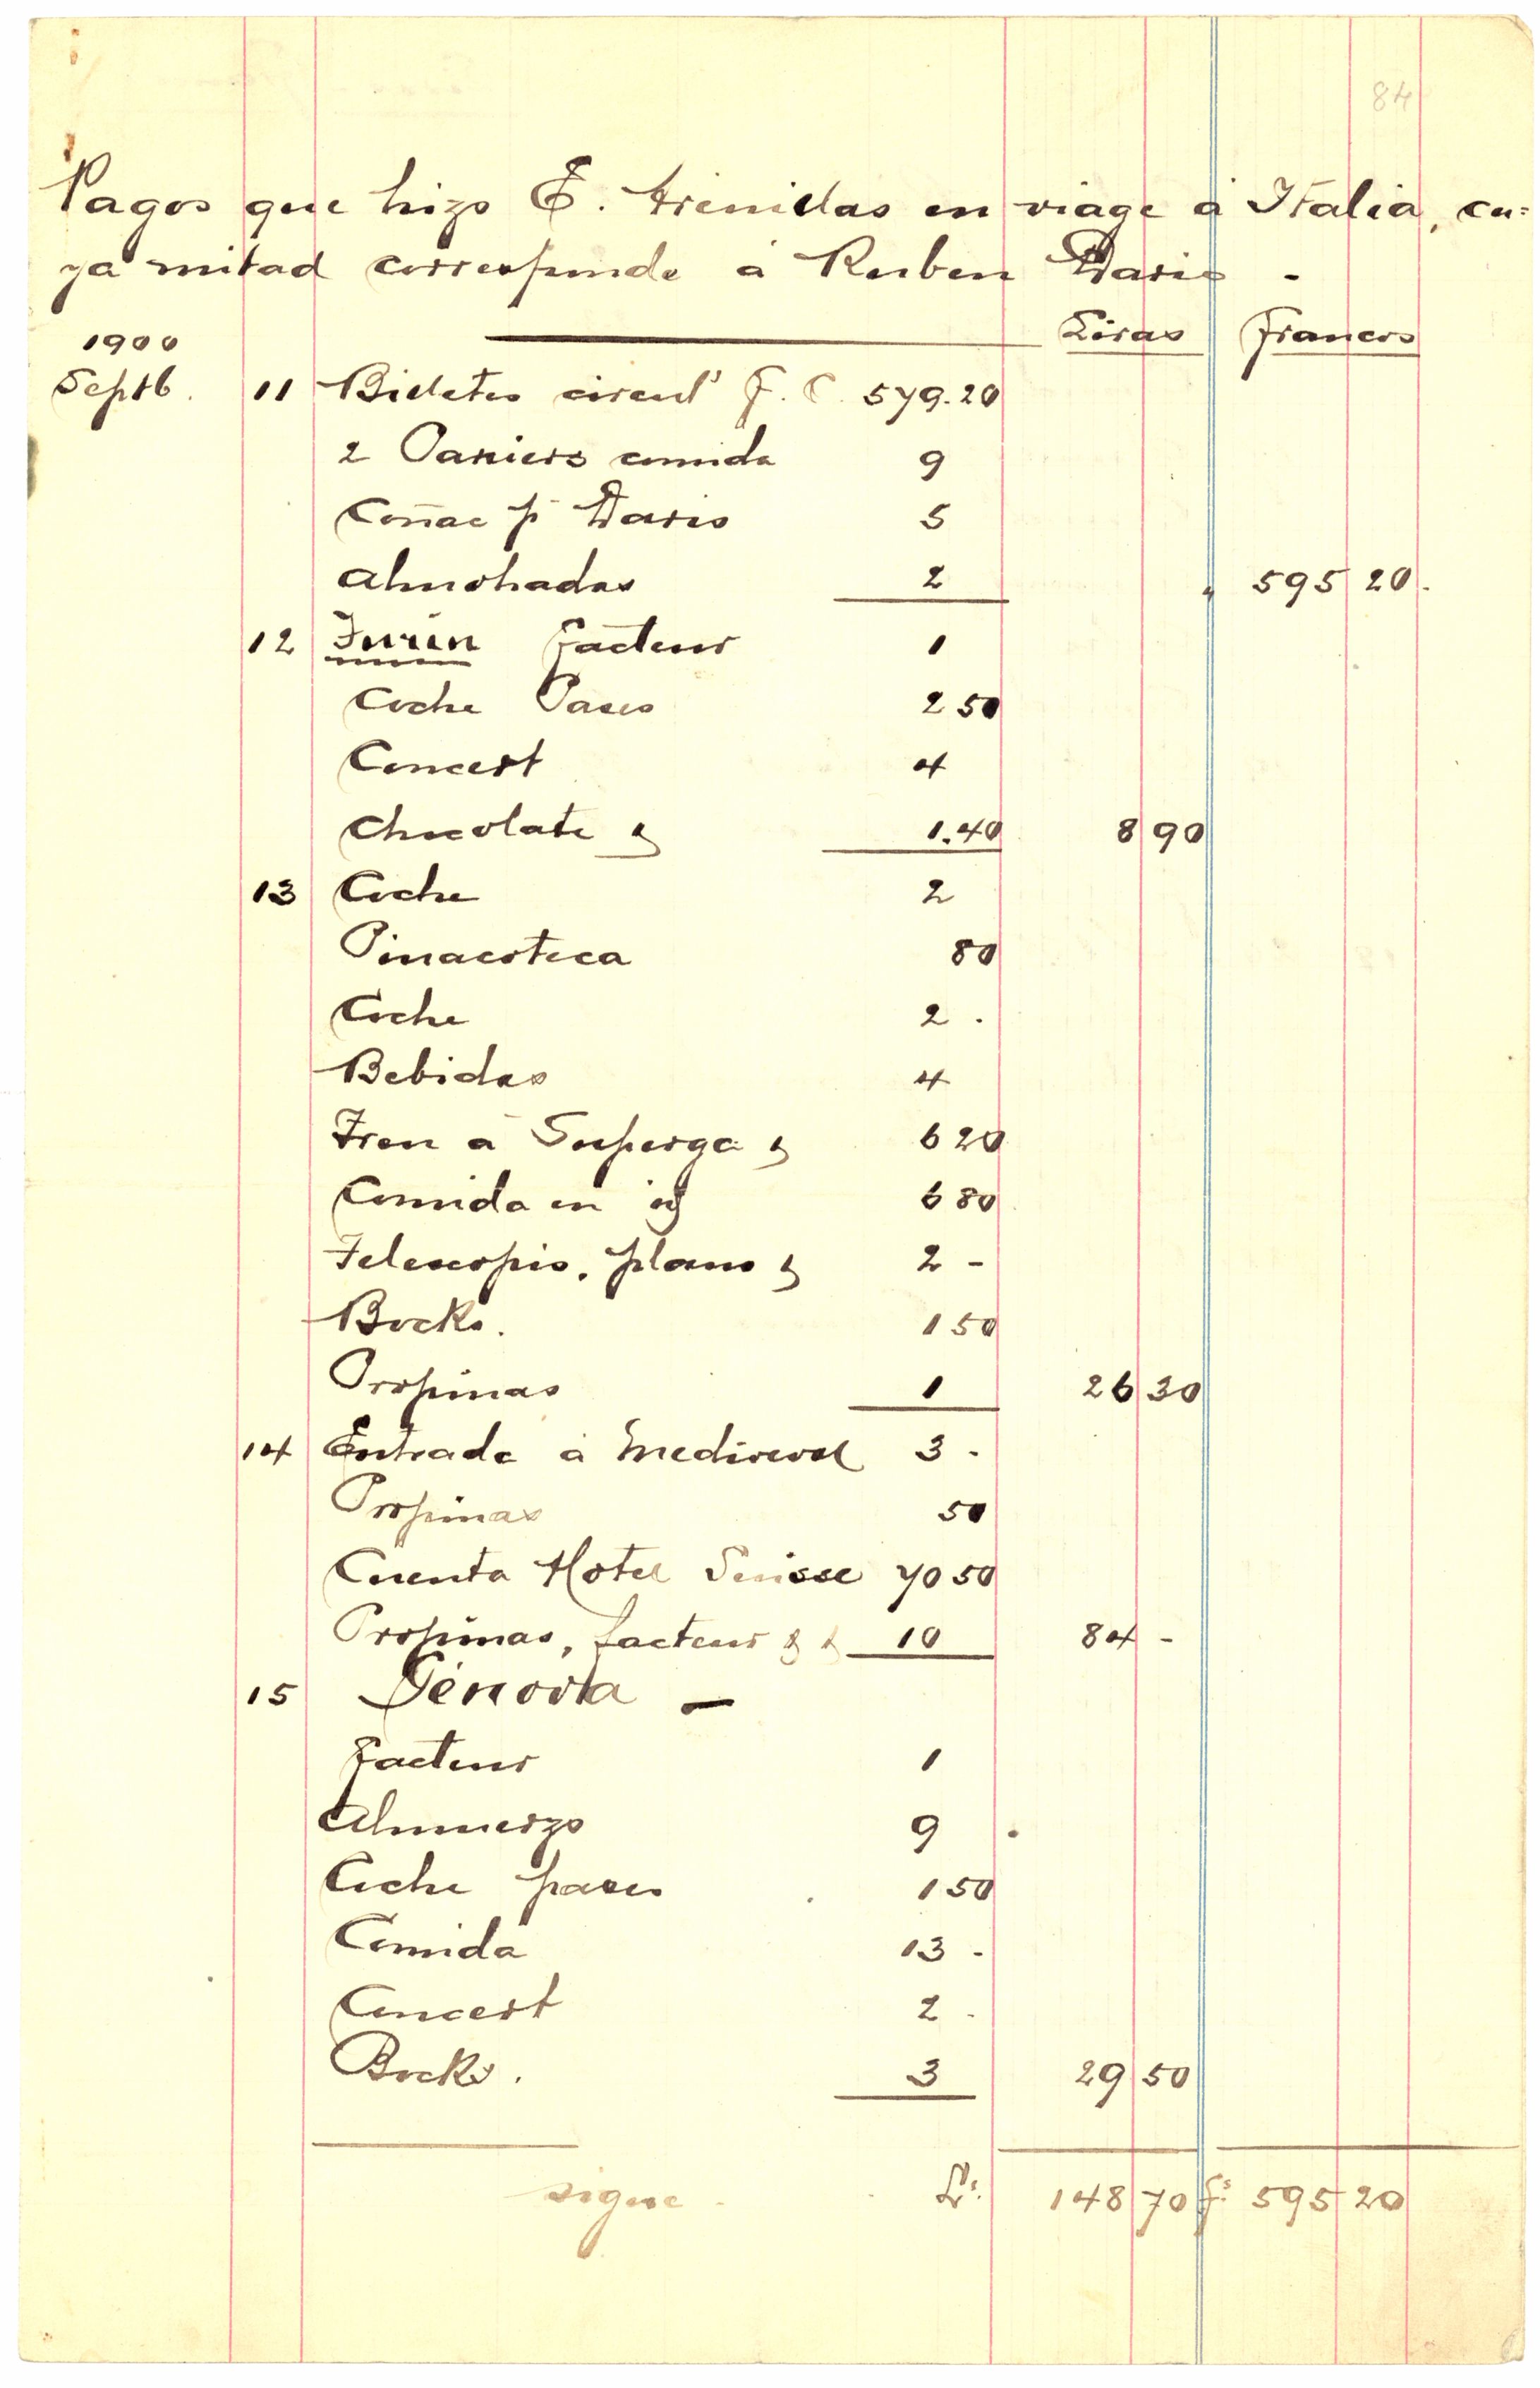 84
Pagos que hizo E. Arenillas en viage á Italia, cu=
ya mitad corresponde á Ruben Dario -
Liras Francos
1900
Septb. 11 Billetes circul F. C. 579.20
2 Paniers comida 9
Coñac p Dario 5
Almohadas 2 595 20.
12 Turin Facteur 1
Coche Paseo 2 50
Concert 4
Chocolate & 1.40 8 90
13 Coche 2
Pinacoteca 80
Coche 2 .
Bebidas 4
Tren a Superga & 6 20
Comida en id 6 80
Telescopio, plano & 2 -
Bocks. 1 50
Propinas 1 26 30
14 Entrada á Medioeval 3 -
Propinas 50
Cuenta Hotel Suisse 70 50
Propinas, facteur & & 10 84 -
15 Génova -
Facteur 1
Almuerzo 9
Coche paseo 1 50
Comida 13 -
Concert 2 -
Bocks. 3 29 50
sigue - L: 148 70 f: 595 20